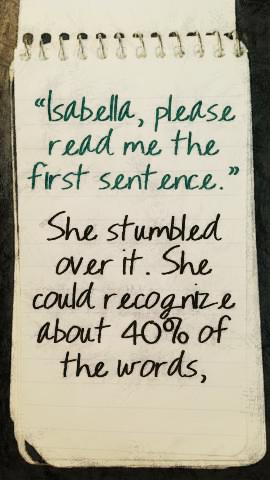 “Isabella, please
read me the
first sentence.”
She stumbled
over it. She
could recognize
about 40% of
the words,